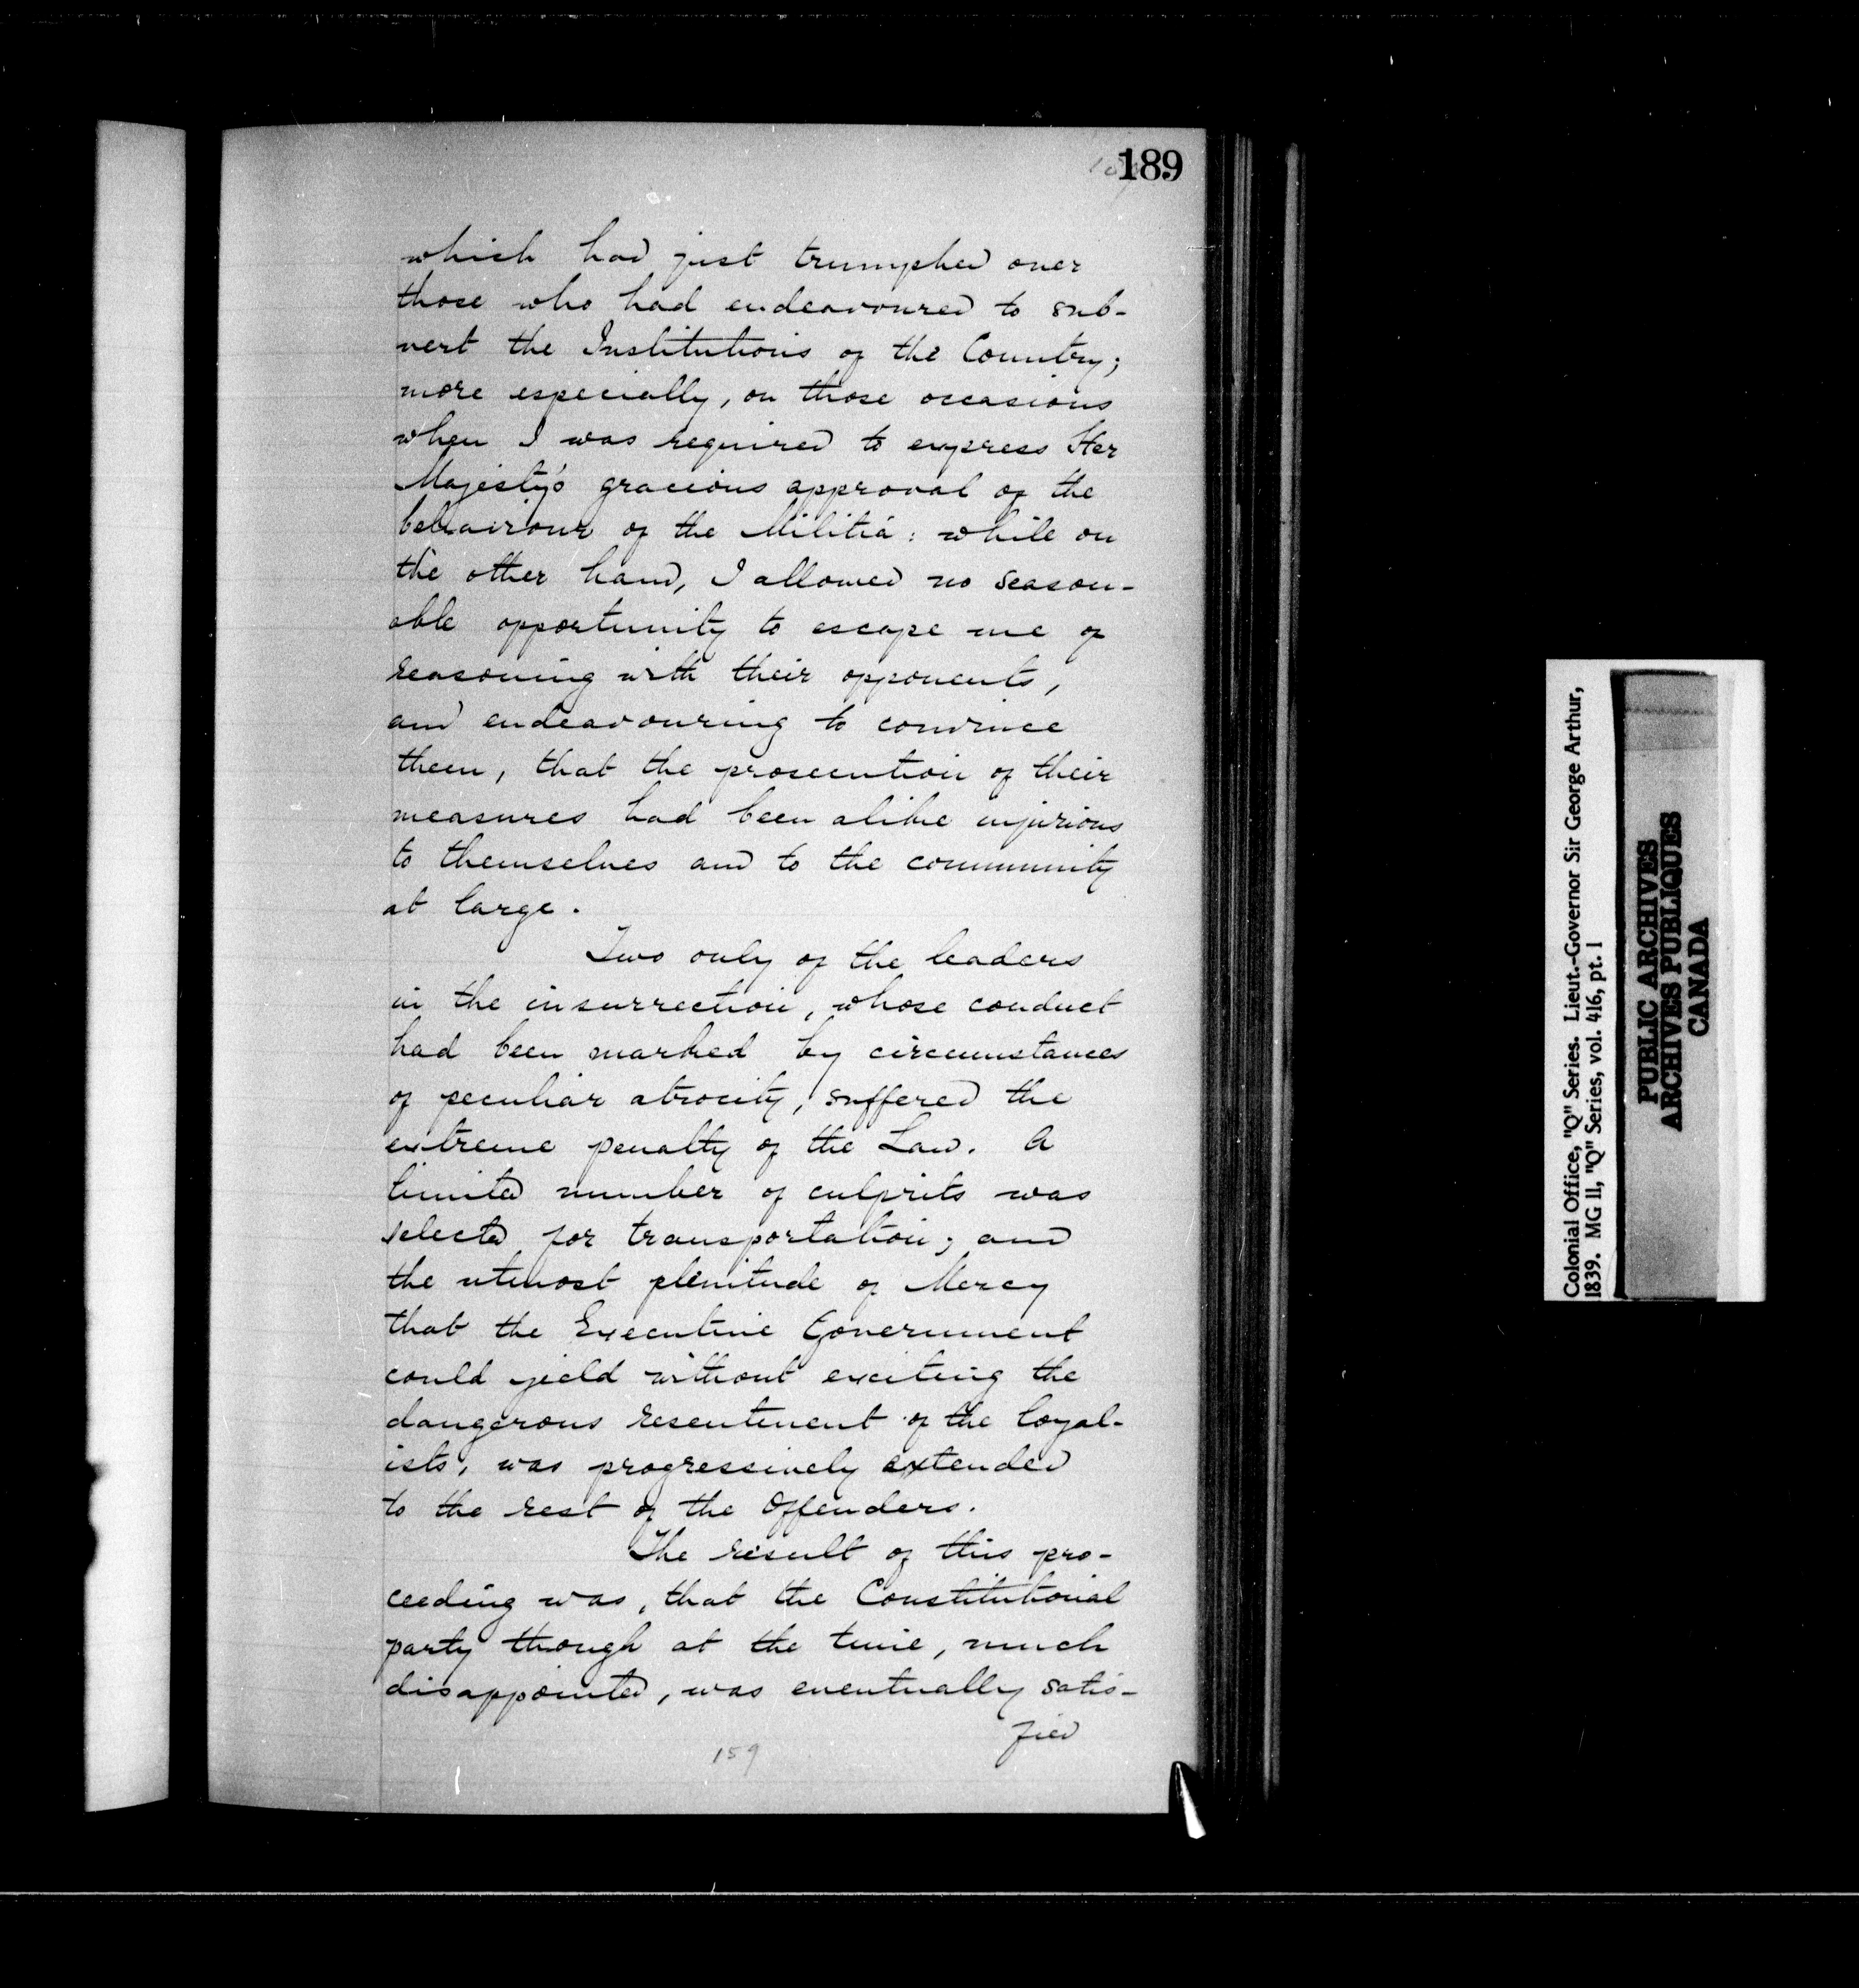 189
which had just triumphed over
those who had endeavoured to sub-
vert the Institutions of the Country;
more especially, on those occasions
when I was required to express Her
Majesty's gracious approval of the
behaviour of the Militia: while on
the other hand, I allowed no season-
able opportunity to escape me of
reasoning with their opponents,
and endeavouring to convince
them, that the prosecution of their
measures had been alike injurious
to themselves and to the community
at large.
Two only of the leaders
in the insurrection, whose conduct
had been marked by circumstances
of peculiar atrocity, suffered the
extreme penalty of the Law. A
limited number of culprits was
selected for transportation; and
the utmost plenitude of Mercy
that the Executive Government
could yield without exciting the
dangerous resentment of the loyal-
ists, was progressively extended
to the rest of the Offenders.
The result of this pro-
ceeding was, that the Constitutional
party though at the time, much
disappointed, was eventually satis-
fied
159
Colonial Office, "Q" Series. Lieut.-Governor Sir George Arthur,
1839. MG 11, "Q" Series, vol. 416, pt. 1
PUBLIC ARCHIVES
ARCHIVES PUBLIQUES
CANADA